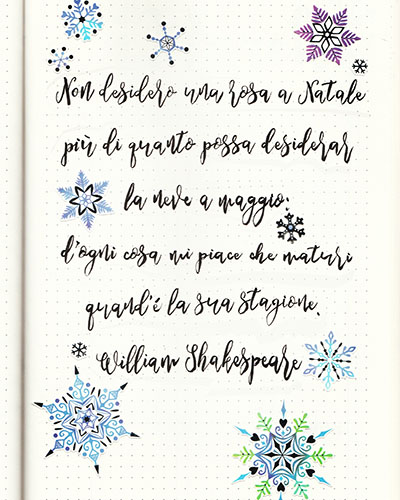 Non desidero una rosa a Natale
più di quanto possa desiderar
la neve a maggio:
d'ogni cosa mi piace che maturi
quand'è la sua stagione.
William Shakespeare